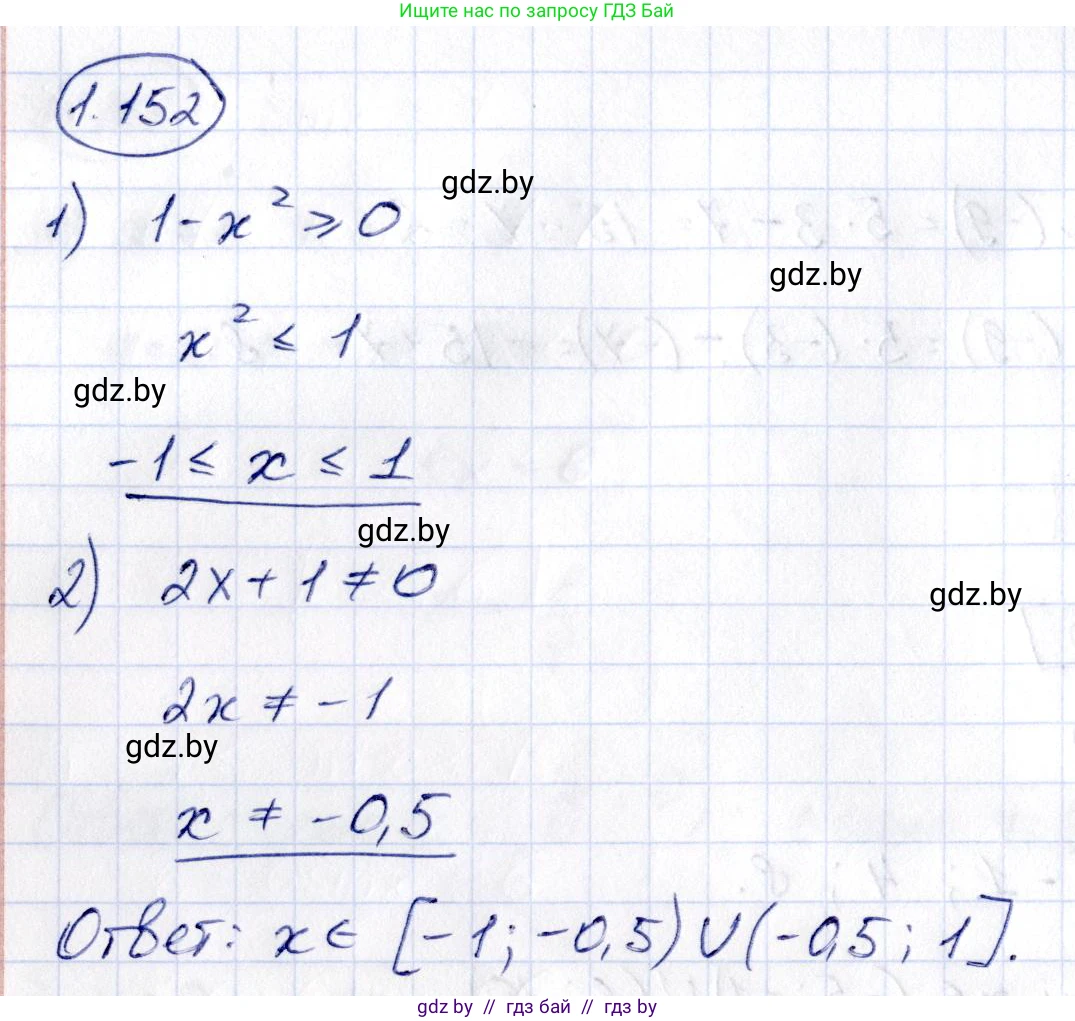 Ищите нас по запросу ГДЗ Бай
1.152
gdz.by
1) 1 - x² ⩾ 0
gdz.by
x² ≤ 1
gdz.by
-1 ≤ x ≤ 1
gdz.by
2) 2x + 1 ≠ 0
gdz.by
2x ≠ -1
gdz.by
x ≠ -0,5
Ответ: x ∈ [-1; -0,5) ∪ (-0,5; 1].
gdz.by // гдз бай // gdz.by